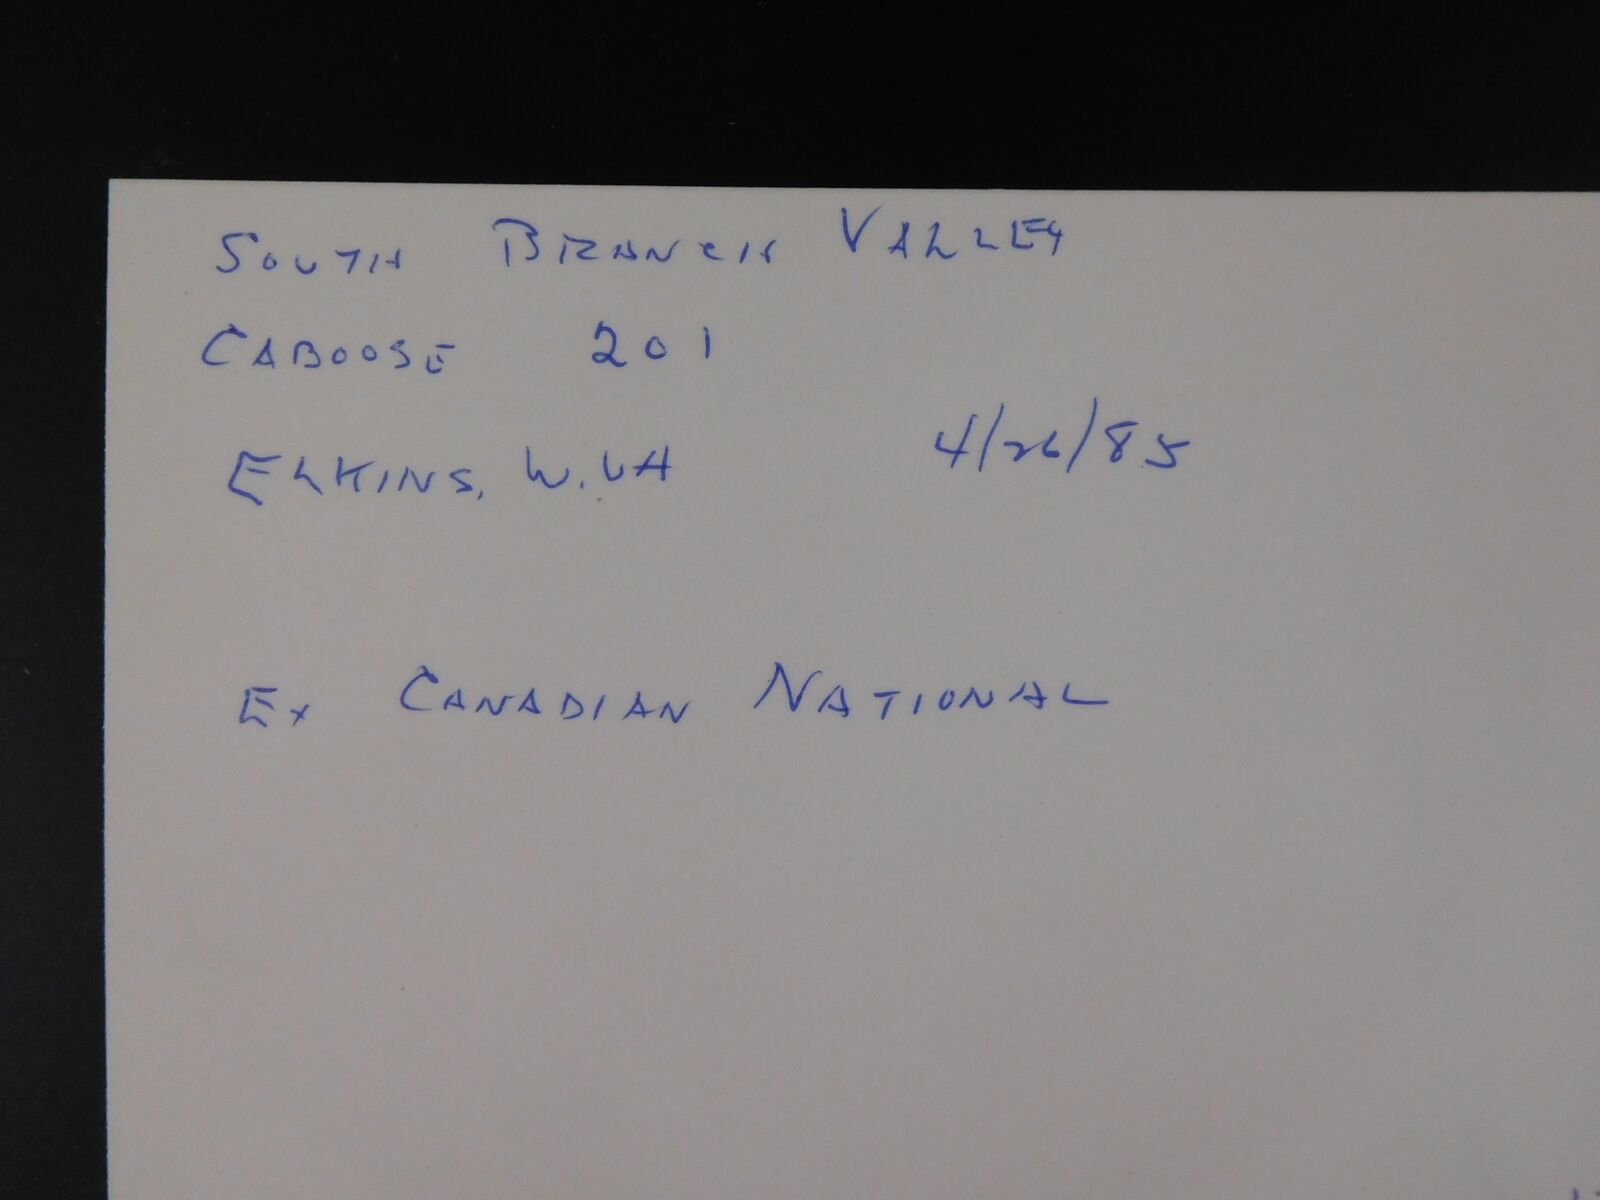 SOUTH BRANCH VALLEY
CABOOSE 201
ELKINS, W.VA 4/26/85
EX CANADIAN NATIONAL